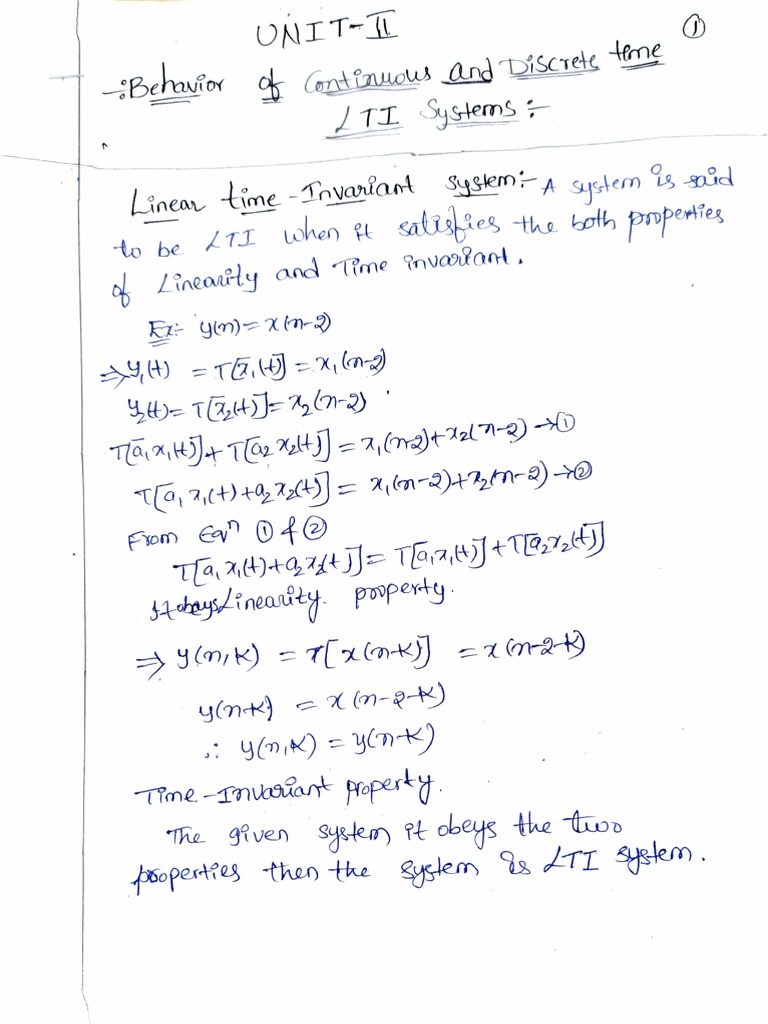 UNIT-II
①
-:Behavior of Continuous and Discrete time
LTI Systems:-
Linear time-Invariant system:- A system is said
to be LTI when it satisfies the both properties
of Linearity and Time invariant.
Ex:- y(n) = x(n-2)
⇒ y₁(t) = T[x₁(t)] = x₁(n-2)
y₂(t) = T[x₂(t)] = x₂(n-2)
T[a₁x₁(t)] + T[a₂x₂(t)] = x₁(n-2) + x₂(n-2) → ①
T[a₁x₁(t) + a₂x₂(t)] = x₁(n-2) + x₂(n-2) → ②
From Eqⁿ ① & ②
T[a₁x₁(t) + a₂x₂(t)] = T[a₁x₁(t)] + T[a₂x₂(t)]
It obeys Linearity property.
⇒ y(n,k) = T[x(n-k)] = x(n-2-k)
y(n-k) = x(n-2-k)
∴ y(n,k) = y(n-k)
Time-Invariant property.
The given system it obeys the two
properties then the system is LTI system.